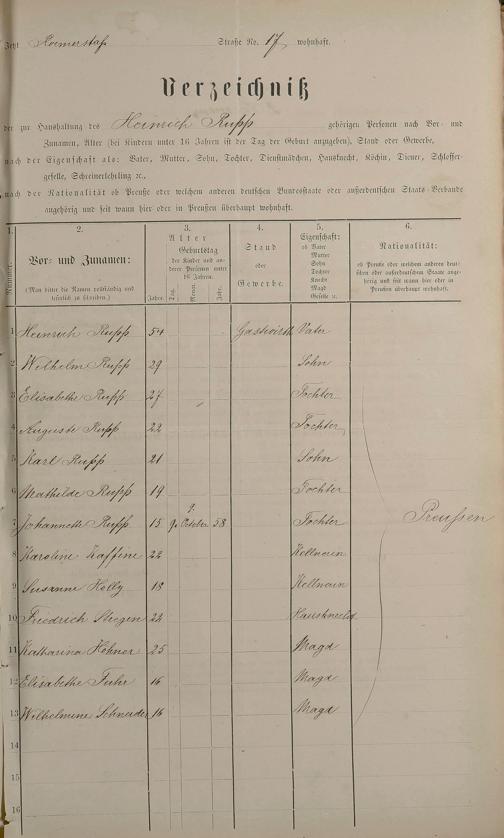 Jetzt Roemerstaf Straße No. 17, wohnhaft.
Verzeichniß
der zur Haushaltung des Heinrich Rupp gehörigen Personen nach Vor- und
Zunamen, Alter (bei Kindern unter 16 Jahren ist der Tag der Geburt anzugeben), Stand oder Gewerbe,
nach der Eigenschaft als: Vater, Mutter, Sohn, Tochter, Dienstmädchen, Hausknecht, Köchin, Diener, Schlosser-
geselle, Schreinerlehrling ꝛc.,
nach der Nationalität ob Preuße oder welchem anderen deutschen Bundesstaate oder außerdeutschen Staats-Verbande
angehörig und seit wann hier oder in Preußen überhaupt wohnhaft.
1. 2. 3. 4. 5. 6.
Nummer.
Vor- und Zunamen:
(Man bittet die Namen vollständig und
leserlich zu schreiben.)
Alter
Geburtstag
der Kinder und an-
derer Personen unter
16 Jahren.
Jahre. Tag. Monat. Jahr.
Stand
oder
Gewerbe.
Eigenschaft:
ob Vater
Mutter
Sohn
Tochter
Knecht
Magd
Geselle ꝛc.
Nationalität:
ob Preuße oder welchem anderen deut-
schen oder außerdeutschen Staate ange-
hörig und seit wann hier oder in
Preußen überhaupt wohnhaft.
1 Heinrich Rupp 54 Gastwirth Vater
2 Wilhelm Rupp 29 Sohn
3 Elisabethe Rupp 27 Tochter
4 Auguste Rupp 22 Tochter
5 Karl Rupp 21 Sohn
6 Mathilde Rupp 19 Tochter
7 Johannette Rupp 15 9. October 58 Tochter
Preussen
8 Karoline Kaffine 22 Kellnerin
9 Susanne Helly 18 Kellnerin
10 Friedrich Stiegen 22 Hausknecht
11 Katharina Hohner 25 Magd
12 Elisabethe Fuhr 16 Magd
13 Wilhelmine Schneider 16 Magd
14
15
16